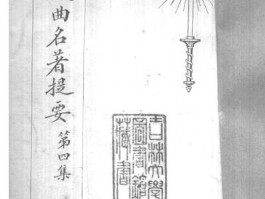 曲名著提要 第四集
吉林大學
圖書館
藏書